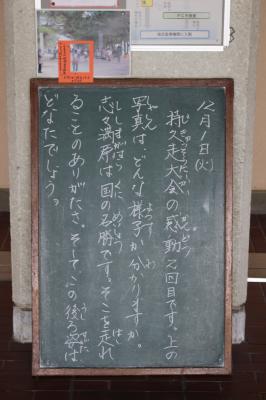 12月1日(火)
持久走大会の感動2回目です。上の
写真は、どんな様子か分かりますか。
志々満原は国の名勝です。そこを走れ
ることのありがたさ。そしてこの後ろ姿は
どなたでしょう。